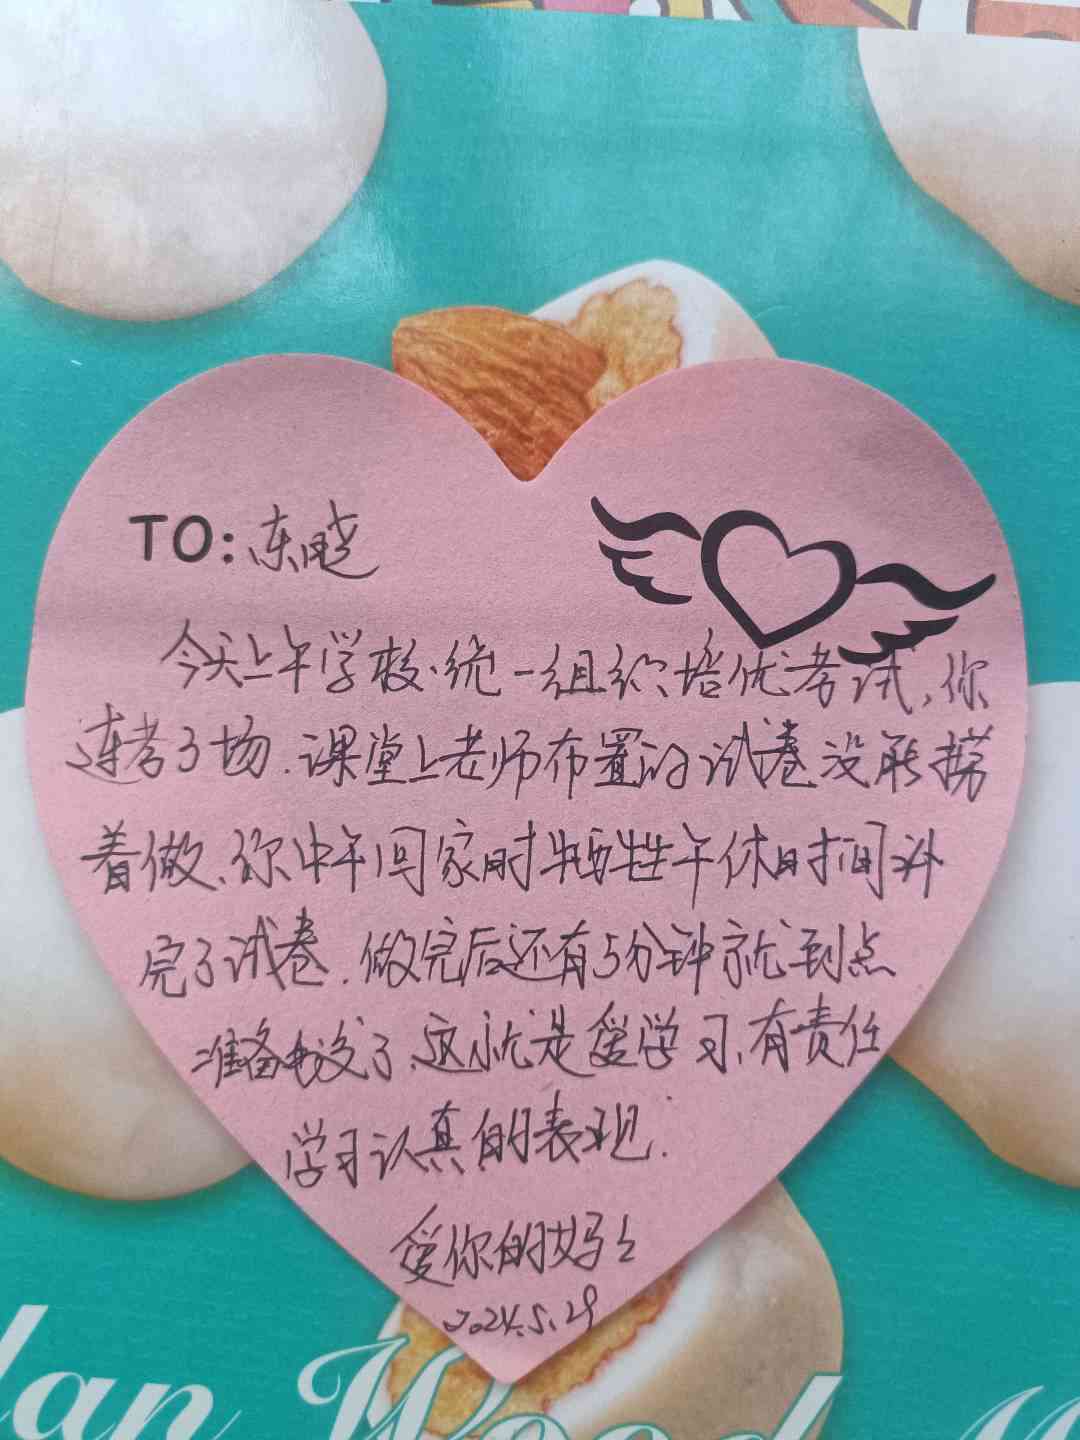 TO:东晓
今天上午学校统一组织培优考试,你
连考了场.课堂上老师布置的试卷没能捞
着做、你中午回家时牺牲午休时间补
完了试卷.做完后还有5分钟就到点
准备出发了.这就是爱学习、有责任
学习认真的表现.
爱你的妈々
2024.5.29
lan Wood